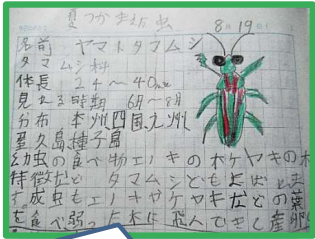 夏 つかまえた 虫 8月19日
名前 ヤマトタマムシ
タマムシ科
体長 24〜40mm
見れる時期 6月〜8月
分布 本州、四国、九州
屋久島、種子島
幼虫の食べ物エノキの木ケヤキの木
特徴など タマムシども
成虫もエノキやケヤキなどの葉
を食べ弱った木に飛んできて産卵